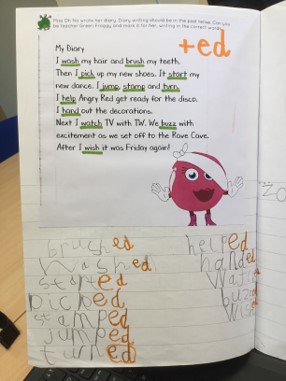 Miss Oh No wrote her diary. Diary writing should be in the past tense. Can you
be teacher Green Froggy and mark it for her, writing in the correct words.
+ed
My Diary
I wash my hair and brush my teeth.
Then I pick up my new shoes. It start my
new dance. I jump, stamp and turn.
I help Angry Red get ready for the disco.
I hand out the decorations.
Next I watch TV with TW. We buzz with
excitement as we set off to the Rave Cave.
After I wish it was Friday again!
brushed
Washed
started
picked
stamped
jumped
turned
helped
handed